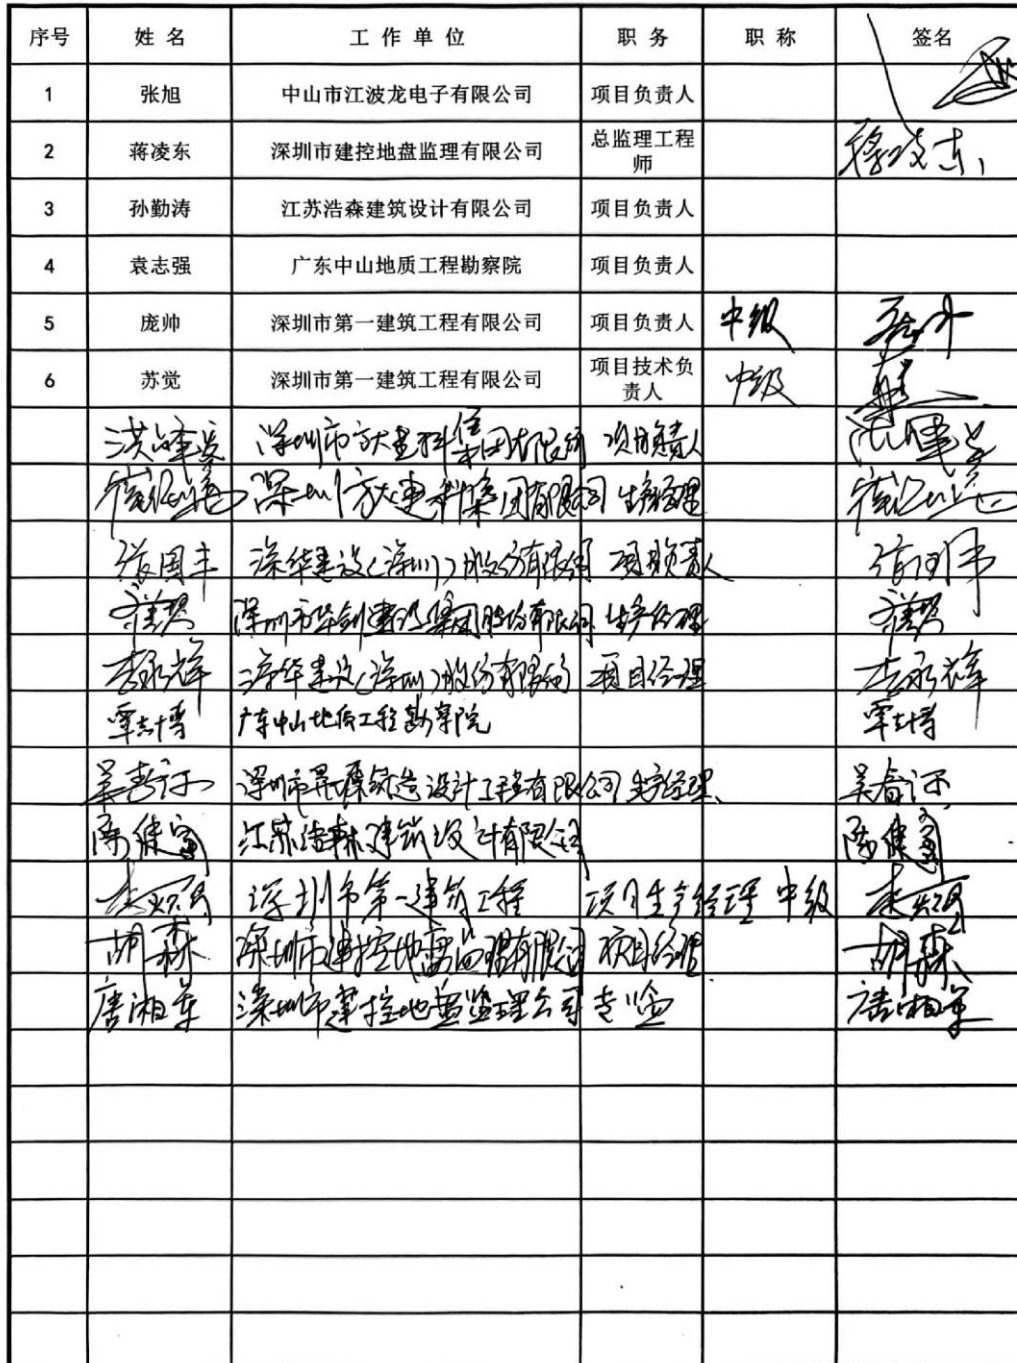 序号 姓名 工作单位 职务 职称 签名
1 张旭 中山市江波龙电子有限公司 项目负责人
2 蒋凌东 深圳市建控地盘监理有限公司 总监理工程师 蒋凌东
3 孙勤涛 江苏浩森建筑设计有限公司 项目负责人
4 袁志强 广东中山地质工程勘察院 项目负责人
5 庞帅 深圳市第一建筑工程有限公司 项目负责人 中级
6 苏觉 深圳市第一建筑工程有限公司 项目技术负责人 中级
深圳市方大建科集团有限公司 项目负责人
深圳方大建科集团有限公司 生产经理
张国丰 深华建设(深圳)股份有限公司 项目负责人
深圳市华剑建设集团股份有限公司 生产经理
李永祥 深华建设(深圳)股份有限公司 项目经理 李永祥
覃志博 广东中山地质工程勘察院 覃志博
深圳市 设计工程有限公司 生产经理
陈健富 江苏浩森建筑设计有限公司 陈健富
深圳市第一建筑工程 项目生产经理 中级
胡森 深圳市建控地盘监理有限公司 项目经理 胡森
唐湘军 深圳市建控地盘监理公司 专监 唐湘军